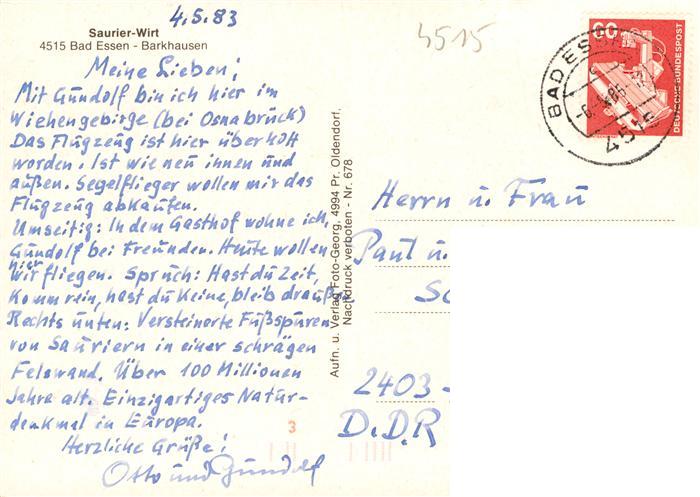 4.5.83
Saurier-Wirt
4515 Bad Essen - Barkhausen
4515
Meine Lieben!
Mit Gundolf bin ich hier im
Wiehengebirge (bei Osnabrück)
Das Flugzeug ist hier überholt
worden. Ist wie neu innen und
außen. Segelflieger wollen mir das
Flugzeug abkaufen.
Umseitig: In dem Gasthof wohne ich,
Gundolf bei Freunden. Heute wollen
wir hier fliegen. Spruch: Hast du Zeit,
komm rein, hast du keine, bleib drauß
Rechts unten: Versteinerte Fußspuren
von Sauriern in einer schrägen
Felswand. Über 100 Millionen
Jahre alt. Einzigartiges Natur-
denkmal in Europa.
Herzliche Grüße!
Otto und Gundolf
Aufn. u. Verlag Foto-Georg, 4994 Pr. Oldendorf,
Nachdruck verboten - Nr. 678
60
DEUTSCHE BUNDESPOST
BAD ESS
4515
Herrn u. Frau
Paul u.
Sc
2403-
D.D.R
3